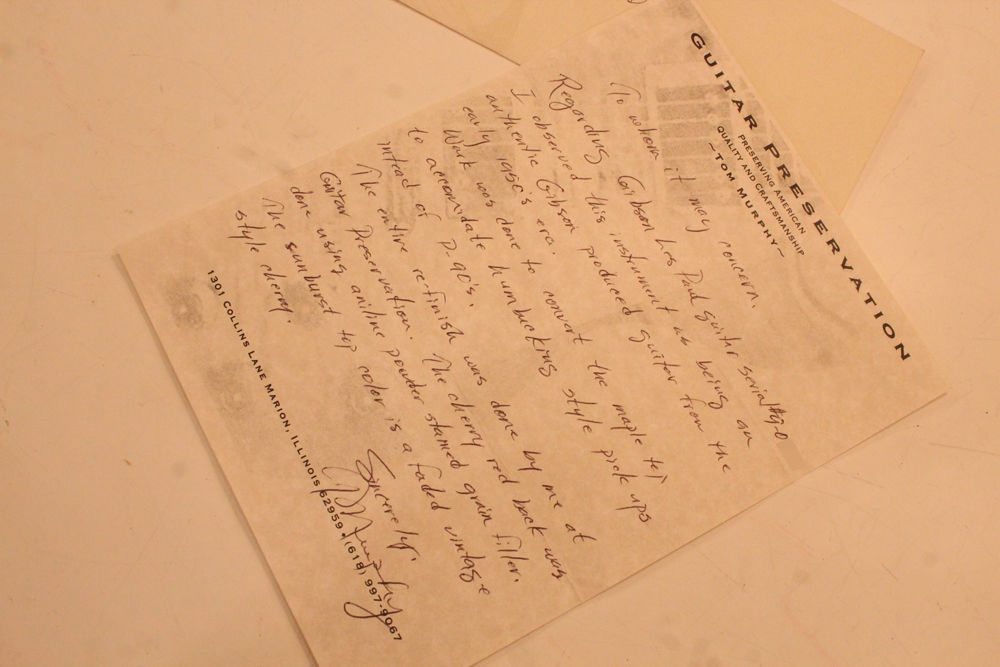 GUITAR PRESERVATION
PRESERVING AMERICAN
QUALITY AND CRAFTSMANSHIP
-TOM MURPHY-
To whom it may concern.
Regarding Gibson Les Paul guitar serial #9-0
I observed this instrument as being an
authentic Gibson produced guitar from the
early 1950's era.
Work was done to convert the maple top
to accomidate humbucking style pick ups
intead of P-90's.
The entire re-finish was done by me at
Guitar Preservation. The cherry red back was
done using aniline powder stained grain filler.
The sunburst top color is a faded vintage
style cherry.
Sincerely,
1301 COLLINS LANE MARION, ILLINOIS 62959 • (618) 997-9067